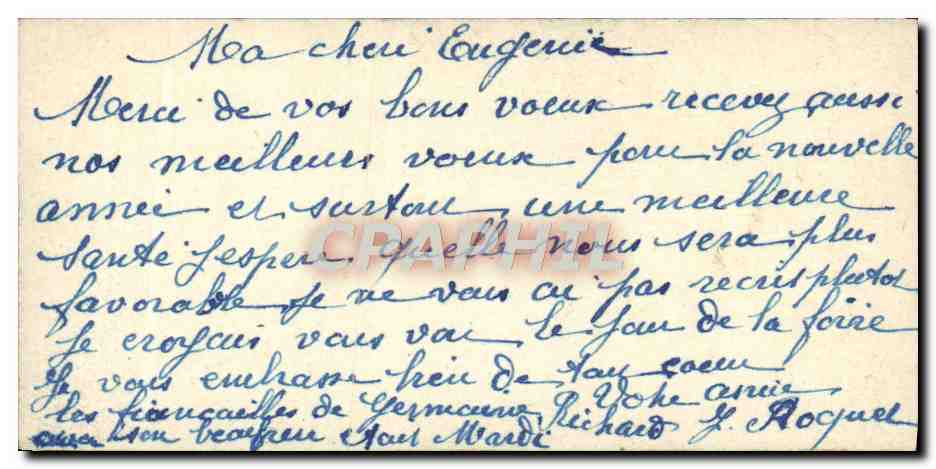 Ma cheri Eugenie
Merci de vos bons voeux recevez aussi
nos meilleurs voeux pour la nouvelle
année et surtout une meilleure
santé j'espere quelle nous sera plus
favorable je ne vous ai pas recris plutot
je croyais vous voir le jour de la foire
Je vous embrasse bien de tout coeur
Votre amie
les fiançailles de Germaine Richard J. Roquet
son beaufrere etait Mardi
CPAPHIL